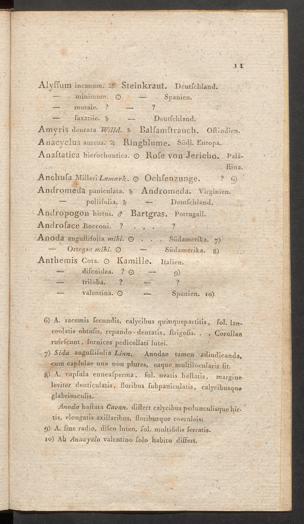 11
Alyſſum incanum. ♂ Steinkraut. Deutſchland.
— minimum. ⊙ — Spanien.
— murale. ? — ?
— ſaxatile. ♄ — Deutſchland.
Amyris dentata Willd. ♄ Balſamſtrauch. Oſtindien.
Anacyclus aureus. ♃ Ringblume. Südl. Europa.
Anaſtatica hierochuntica. ⊙ Roſe von Jericho. Palä-
ſtina.
Anchuſa Milleri Lamark. ⊙ Ochſenzunge. ? 6)
Andromeda paniculata. ♄ Andromeda. Virginien.
— poliifolia. ♄ — Deutſchland.
Andropogon hirtus. ♂ Bartgras. Portugall.
Androſace Bocconi. ? . . . . ?
Anoda anguſtifolia mihi. ⊙ . . . Südamerika. 7)
— Ortegae mihi. ⊙ — Südamerika. 8)
Anthemis Cota. ⊙ Kamille. Italien.
— diſcoidea. ? ⊙ — 9)
— triloba. ? — ?
— valentina. ⊙ — Spanien. 10)
6) A. racemis ſecundis, calycibus quinquepartitis, fol. lan-
ceolatis obtuſis, repando-dentatis, ſtrigoſis. . . Corollae
rufeſcunt, fornices pedicellati lutei.
7) Sida anguſtifolia Linn. Anodae tamen adiudicanda,
cum capſulae uns non plures, eaque multilocularis ſit.
8) A. capſula enneaſperma, fol. ovatis haſtatis, margine
leviter denticulatis, floribus ſubpaniculatis, calycibusque
glabriuſculis.
Anoda haſtata Cavan. differt calycibus pedunculisque hir-
tis, elongatis axillaribus, floribusque coeruleis.
9) A. ſine radio, diſco luteo, fol. multifidis ſerratis.
10) Ab Anacyclo valentino ſolo habitu differt.